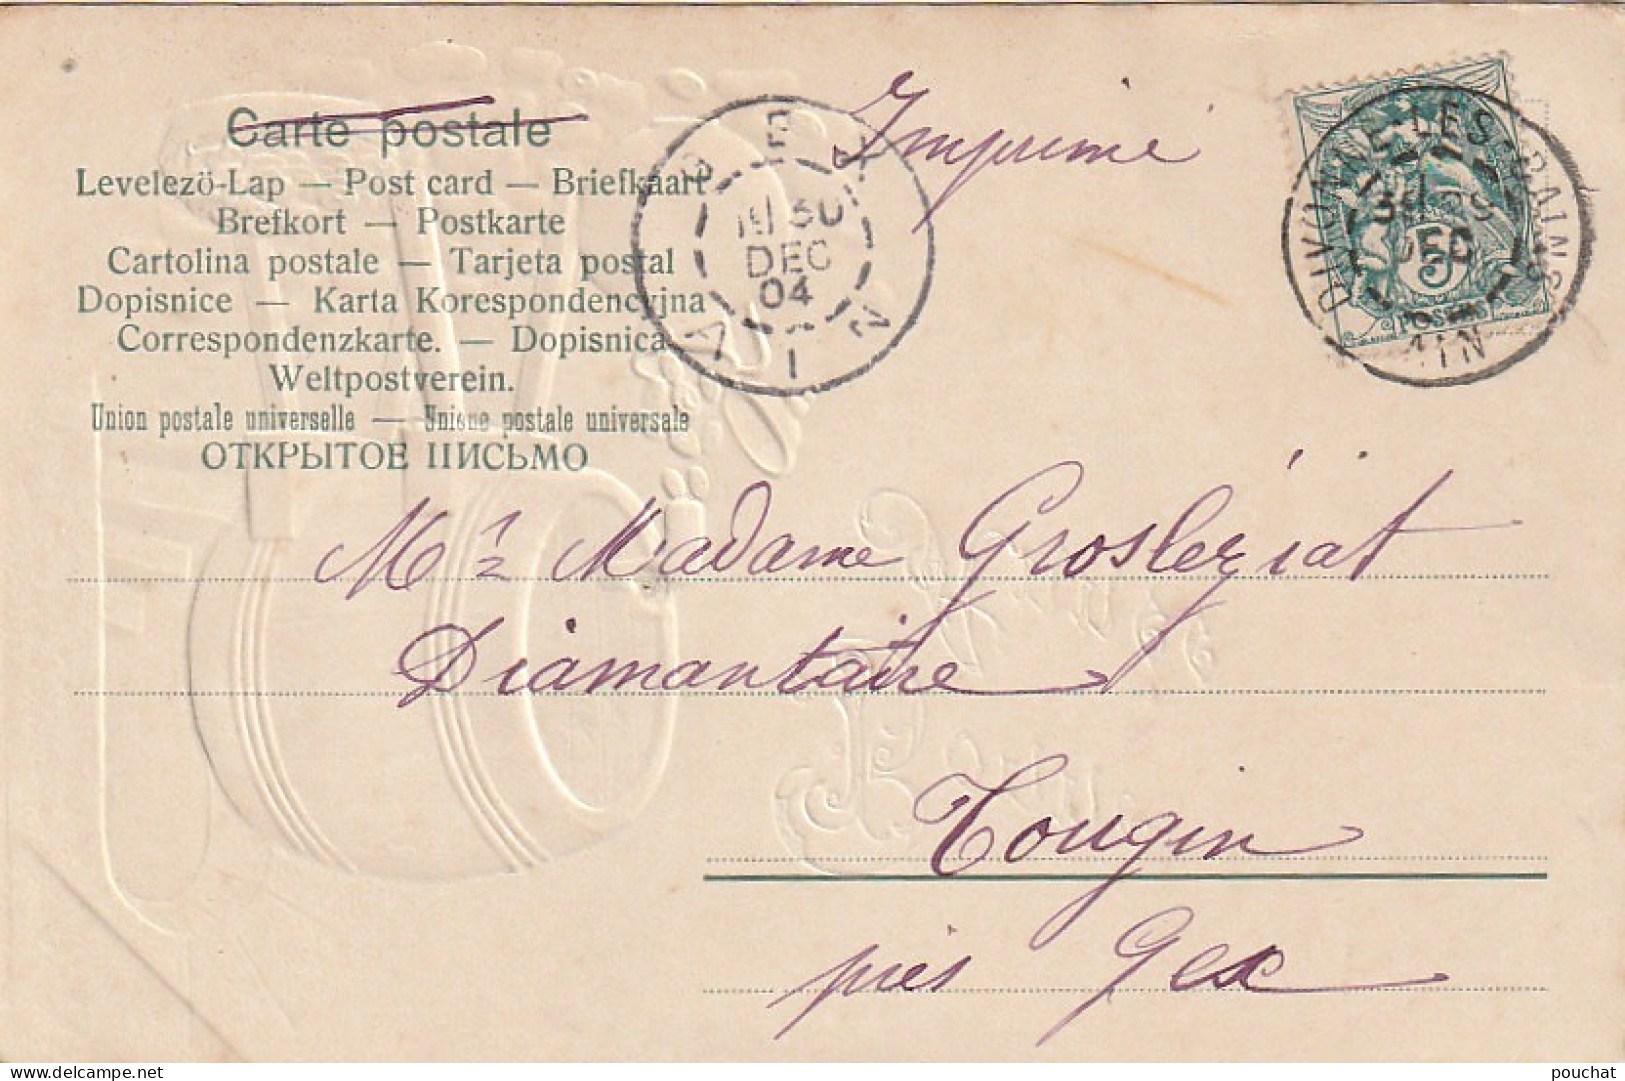 Carte postale
Imprimé
Levelezö-Lap — Post card — Briefkaart
Brefkort — Postkarte
Cartolina postale — Tarjeta postal
Dopisnice — Karta Korespondencyjna
Correspondenzkarte. — Dopisnica
Weltpostverein.
Union postale universelle — Unione postale universale
ОТКРЫТОЕ ПИСЬМО
GEX
30
DEC
04
AIN
DIVONNE-LES-BAINS
30
DEC
AIN
5
POSTES
Mr & Madame Groslegiat
Diamantaire
Tougin
près Gex
pouchat